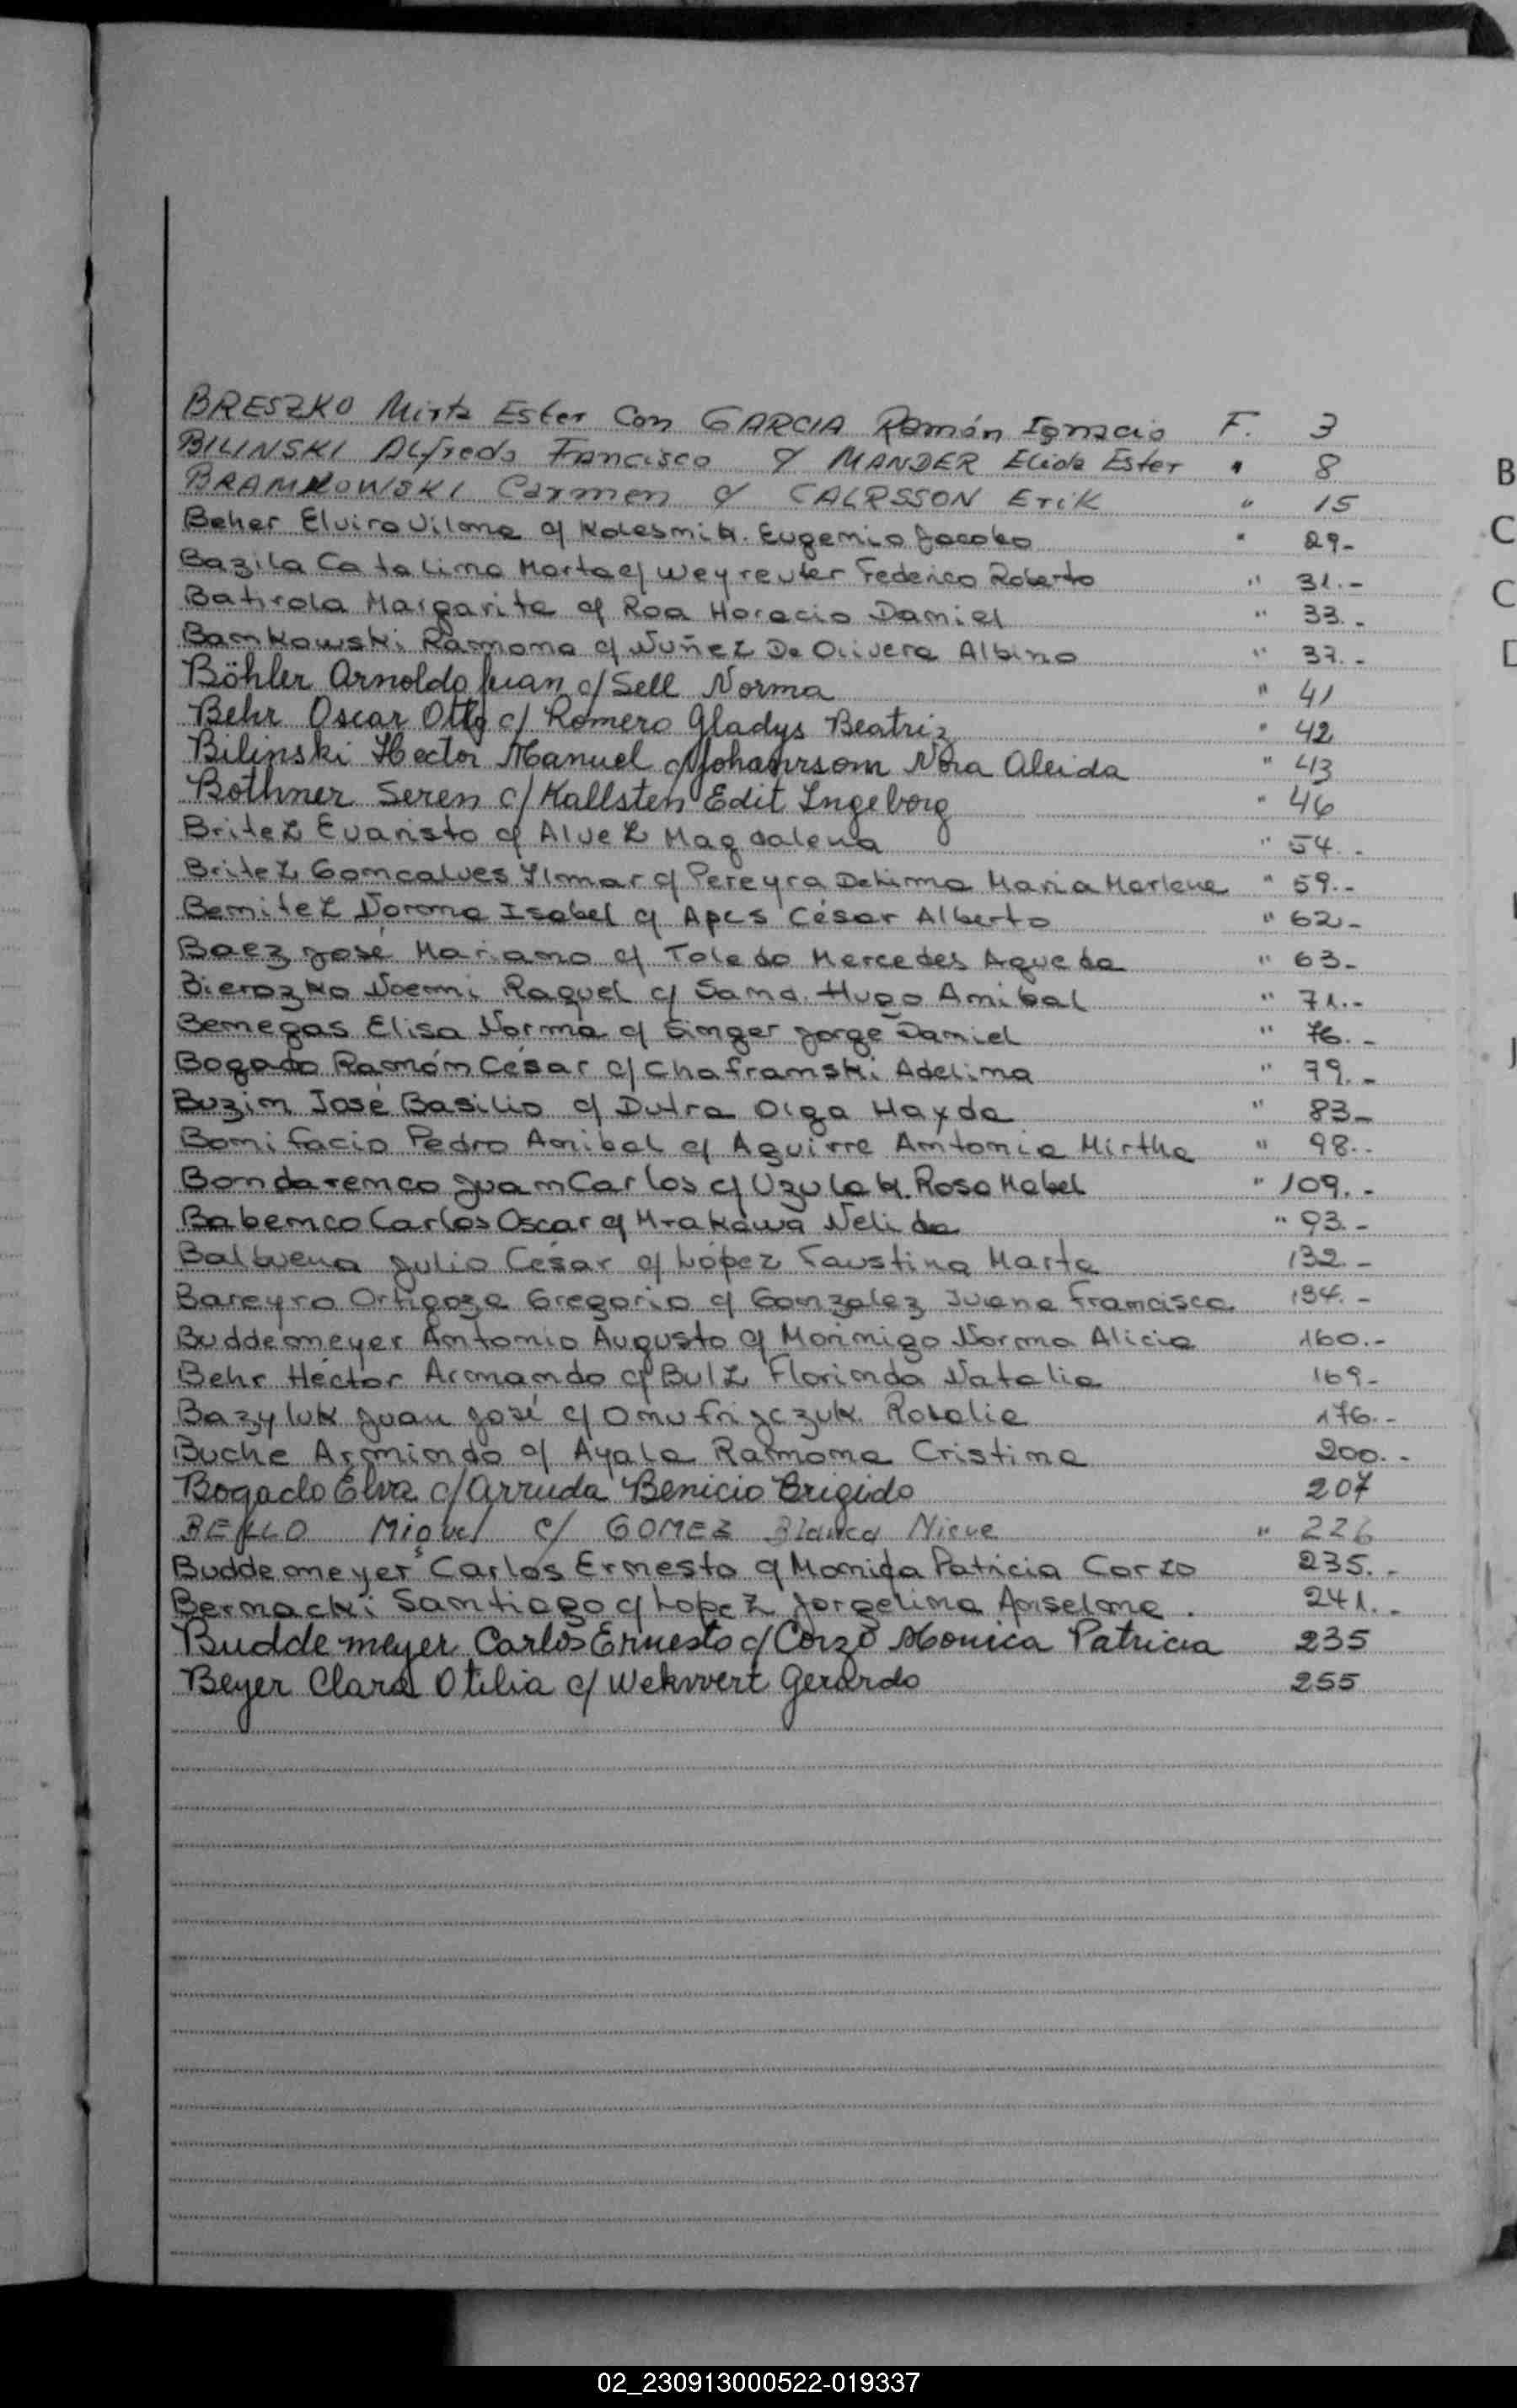 BRESZKO Mirta Ester Con GARCIA Ramón Ignacio F. 3
BILINSKI Alfredo Francisco c/ MANDER Elida Ester " 8
BRAMKOWSKI Carmen c/ CALRSSON Erik " 15
Beher Elvira Vilma c/ Kolesnik. Eugenio Jacobo " 29-
Bazila Catalina Marta c/ Weyreuter Federico Roberto " 31.-
Batirola Margarita c/ Roa Horacio Daniel " 33.-
Bankowski Ramona c/ Nuñez De Olivera Albino " 37.-
Böhler Arnoldo Juan c/ Sell Norma " 41
Behr Oscar Otto c/ Romero Gladys Beatriz " 42
Bilinski Hector Manuel c/ Nora Aleida " 43
Bothner Seren c/ Kallsten Edit Ingeborg " 46
Britez Evaristo c/ Alvez Magdalena " 54.-
Britez Goncalves Ilmar c/ Pereyra Maria Marlene " 59.-
Benitez Norma Isabel c/ César Alberto " 62-
Baez José Mariano c/ Toledo Mercedes Agueda " 63-
Bierozko Noemi Raquel c/ Hugo Anibal " 71.-
Benegas Elisa Norma c/ Singer Jorge Daniel " 76.-
Bogado Ramón César c/ Chaframski Adelina " 79.-
Buzin José Basilio c/ Dutra Olga Hayde " 83-
Bonifacio Pedro Anibal c/ Aguirre Antonia Mirtha " 98.-
Bondarenco Juan Carlos c/ Uzulak. Rosa Mabel " 109.-
Babenco Carlos Oscar c/ Mrakawa Nelida " 93.-
Balbuena Julio César c/ López Faustina Marta 132.-
Bareyro Ortigoza Gregorio c/ Gonzalez Juana Francisca 134.-
Buddemeyer Antonio Augusto c/ Morinigo Norma Alicia 160.-
Behr Héctor Armando c/ Bulz Florinda Natalia 169-
Bazyluk Juan José c/ Rosalia 176.-
Buche Armindo c/ Ayala Ramona Cristina 200.-
Bogado Elva c/ Arruda Benicio Brigido 207
BELLO Miguel c/ GOMEZ Blanca Nieve " 226
Buddemeyer Carlos Ernesto c/ Monica Patricia Corzo 235.-
Bernacki Santiago c/ Lopez Jorgelina Anselma. 241.-
Buddemeyer Carlos Ernesto c/ Corzo Monica Patricia 235
Beyer Clara Otilia c/ Wekwert Gerardo 255
B
C
C
D
J
02_230913000522-019337